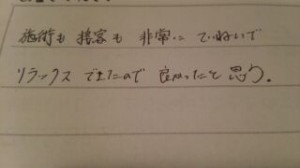 施術も接客も非常にていねいで
リラックスできたので良かったと思う。